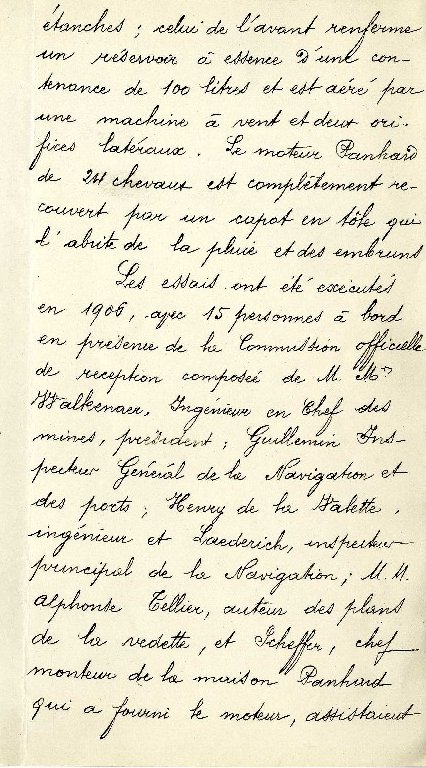 étanches ; celui de l'avant renferme
un réservoir à essence d'une con-
tenance de 100 litres et est aéré par
une machine à vent et deux ori-
fices latéraux. Le moteur Panhard
de 24 chevaux est complètement re-
couvert par un capot en tôle qui
l'abrite de la pluie et des embruns
Les essais ont été exécutés
en 1906, avec 15 personnes à bord
en présence de la Commission officielle
de réception composée de M. Mrs
Walkenaer, Ingénieur en Chef des
mines, président ; Guillemin Ins-
pecteur Général de la Navigation et
des ports ; Henry de la Valette,
ingénieur et Laederich, inspecteur
principal de la Navigation ; M.M.
Alphonse Tellier, auteur des plans
de la vedette, et Scheffer, chef
monteur de la maison Panhard
qui a fourni le moteur, assistaient